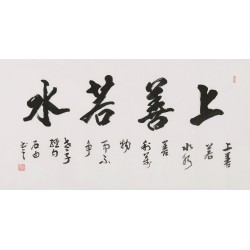 上善若水
上善
若
水水
善
利萬
物
而不
争
老子
句
石由